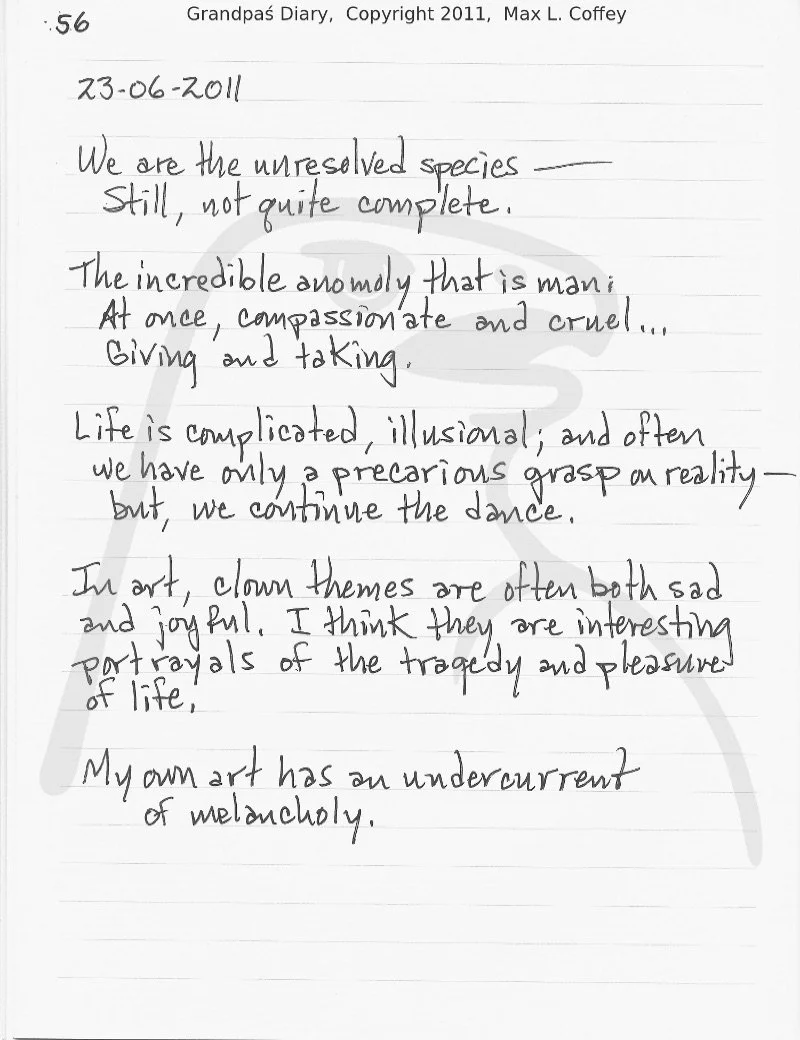 56
Grandpaś Diary, Copyright 2011, Max L. Coffey
23-06-2011
We are the unresolved species —
Still, not quite complete.
The incredible anomoly that is man;
At once, compassionate and cruel...
Giving and taking.
Life is complicated, illusional; and often
we have only a precarious grasp on reality —
but, we continue the dance.
In art, clown themes are often both sad
and joyful. I think they are interesting
portrayals of the tragedy and pleasure
of life.
My own art has an undercurrent
of melancholy.